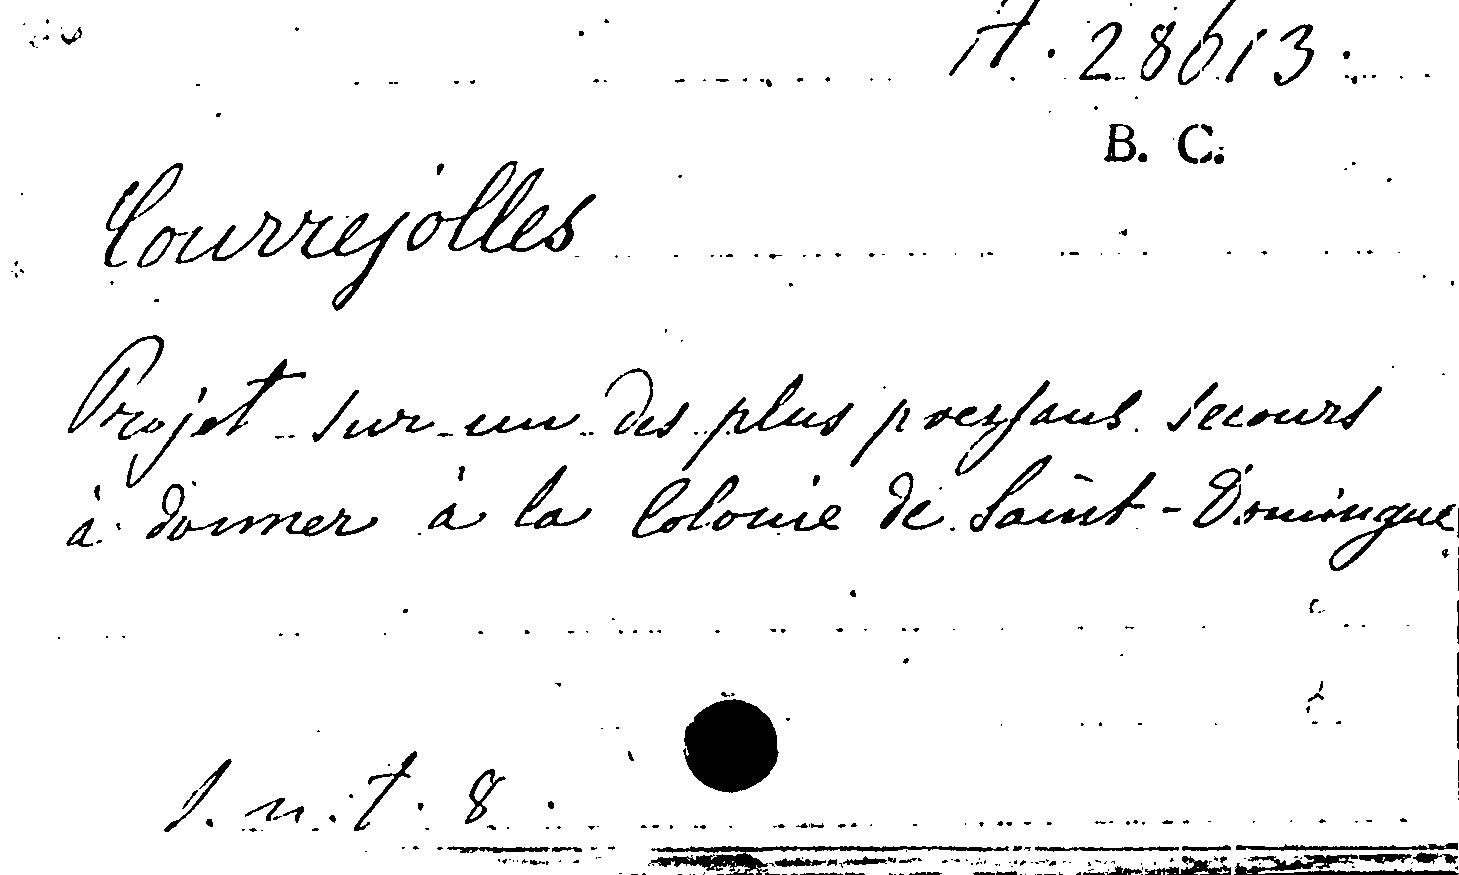 A. 28613.
B. C.
Courrejolles
Projet sur un des plus pressans secours
à donner à la Colonie de Saint-Domingue.
s. n. t. 8.